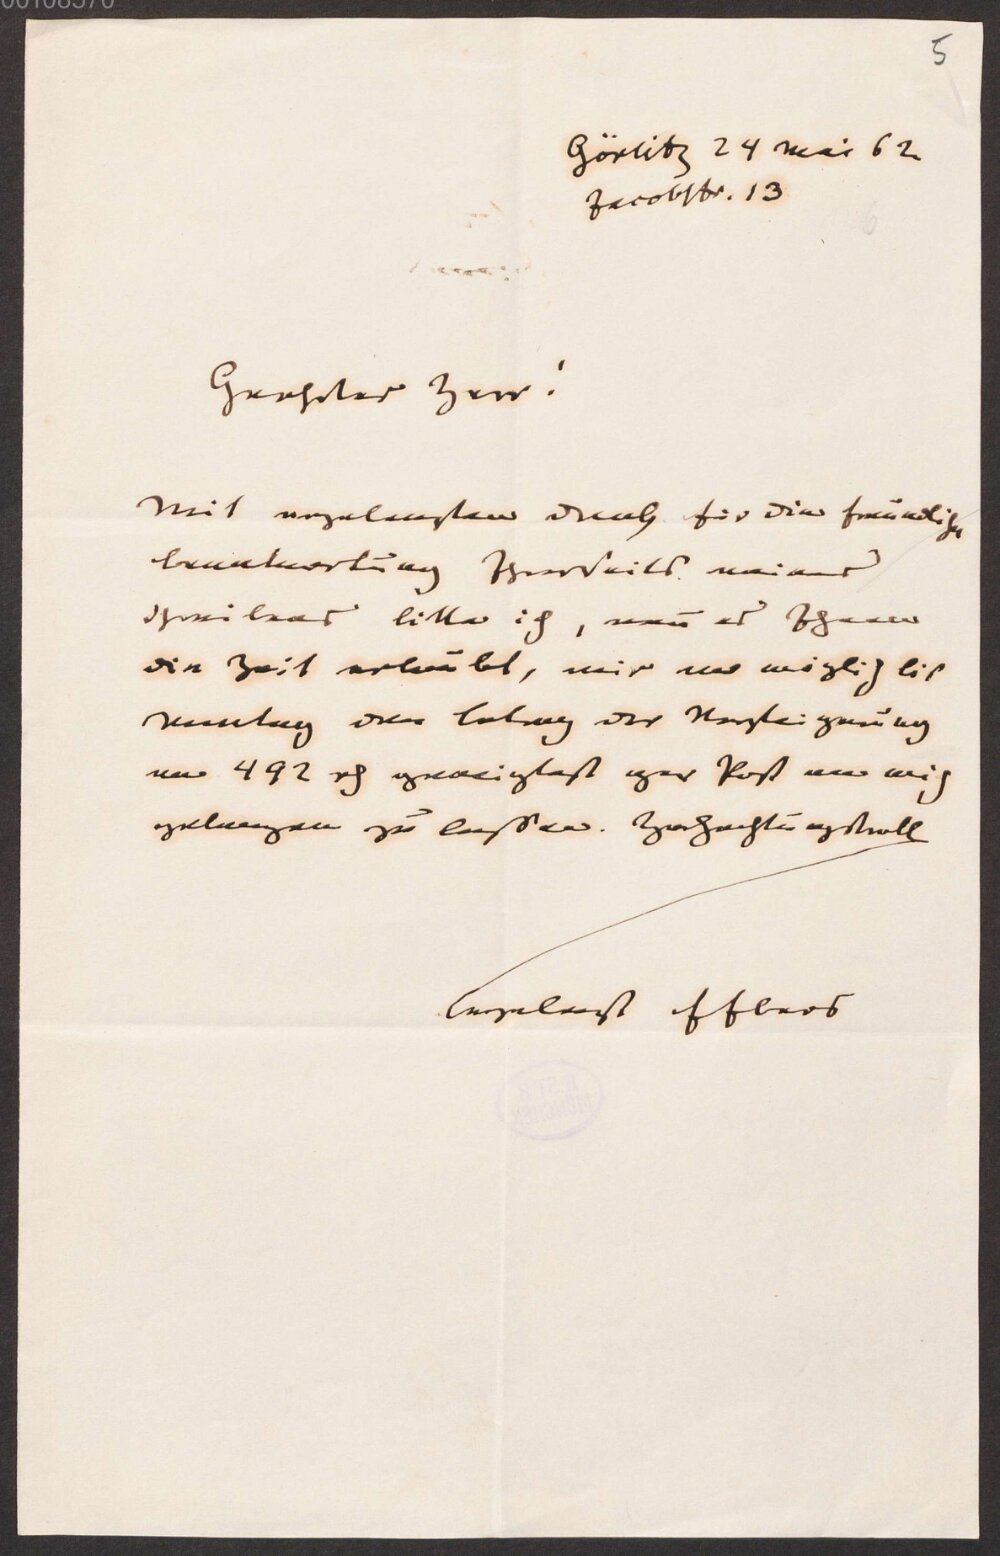 5
Görlitz 24 Mai 62
Jacobstr. 13
Geehrter Herr!
Mit ergebenstem Dank für die freundliche
beantwortung Ihrerseits meines
Schreibens bitte ich, wenn es Ihnen
die Zeit erlaubt, mir wo möglich bis
Montag den betrag der Versteigerung
von 492 rh per Post an mich
gelangen zu lassen. Hochachtungsvoll
ergebenst